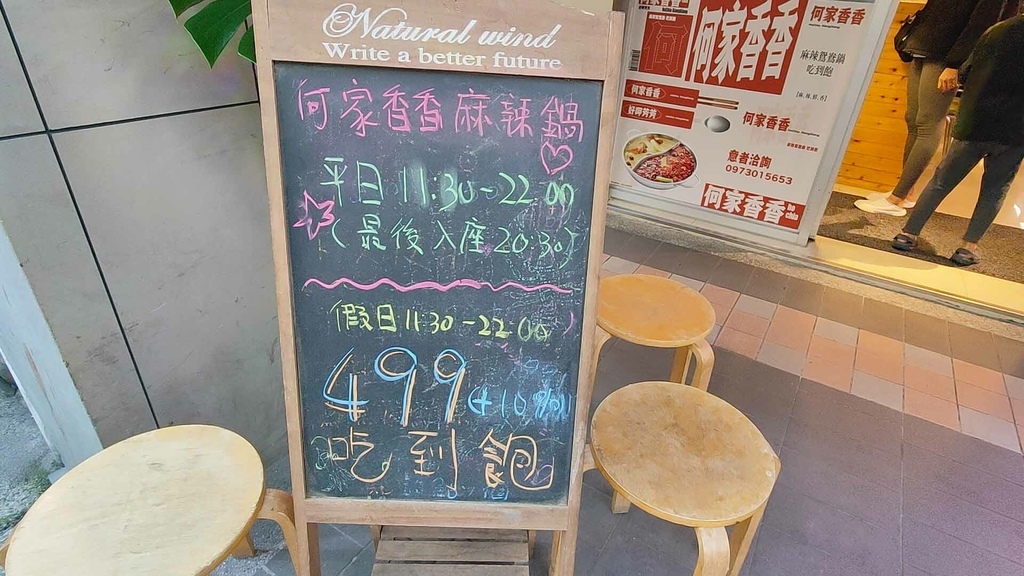 Natural wind
Write a better future
何家香香麻辣鍋
平日11:30-22:00
(最後入座20:30)
假日11:30-22:00
499+10%
吃到飽
何
何家香香
何家香香
麻辣鴛鴦鍋
吃到飽
何家香香
何家香香
意者洽詢
0973015653
何家香香